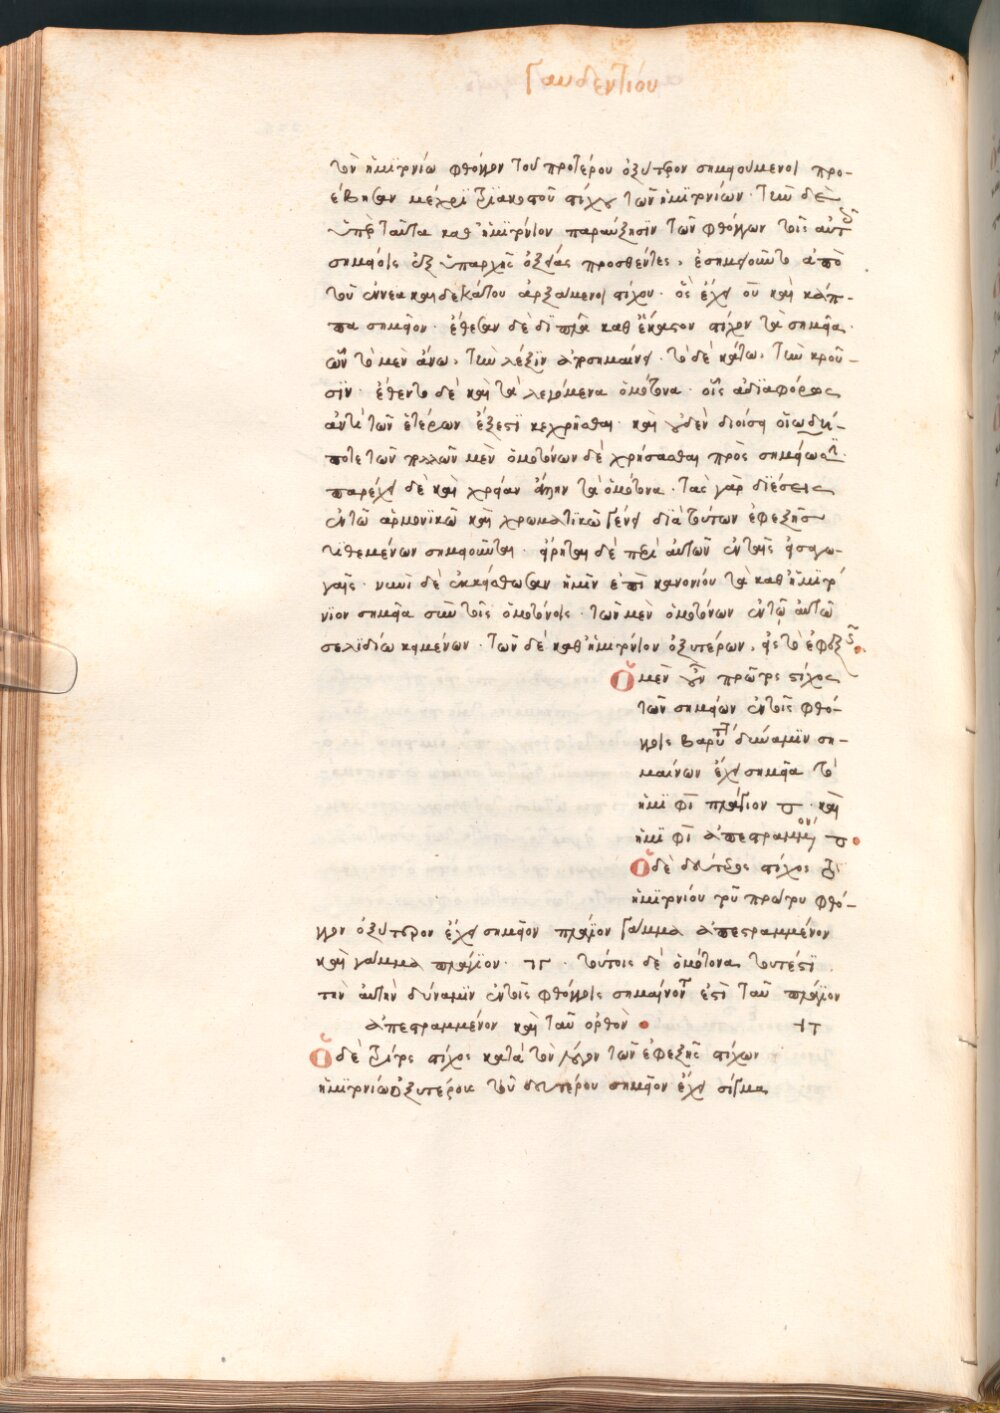 Γαυδεντίου
τὸν ἡμιτονίω φθόγγον τοῦ προτέρου ὀξύτερον σημειούμενοι προ-
έβησαν μέχρι τριακοστοῦ στίχου τῶν ἡμιτονίων· τὴν δὲ
ὑπὲρ ταῦτα καθ' ἡμιτόνιον παραύξησιν τῶν φθόγγων τοῖς αὐτοῖς
σημείοις ἐξ ὑπαρχῆς ὀξείας προσθέντες, ἐσημειοῦντο ἀπὸ
τοῦ ἐννεακαιδεκάτου ἀρξάμενοι στίχου· ὃς ἔχει οὗ καὶ κάπ-
πα σημεῖον· ἔθεσαν δὲ διπλᾶ καθ' ἕκαστον στίχον τὰ σημεῖα·
ὧν τὸ μὲν ἄνω, τὴν λέξιν ἀποσημαίνει· τὸ δὲ κάτω, τὴν κροῦ-
σιν· ἔθεντο δὲ καὶ τὰ λεγόμενα ὁμότονα· οἷς ἀδιαφόρως
ἀντὶ τῶν ἑτέρων ἔξεστι κεχρῆσθαι· καὶ οὐδὲν διοίσει οἵω δή-
ποτε τῶν πολλῶν μὲν ὁμοτόνων δὲ χρήσασθαι πρὸς σημείωσιν·
παρέχει δὲ καὶ χρείαν τὰ ὁμότονα· τὰς γὰρ διέσεις
ἐν τῶ ἁρμονικῶ καὶ χρωματικῶ γένει διὰ τούτων ἐφεξῆς
τιθεμένων σημειοῦνται· εἴρηται δὲ περὶ αὐτῶν ἐν ταῖς εἰσαγω-
γαῖς· νυνὶ δὲ ἐκκείσθωσαν ἡμῖν ἐπὶ κανονίου τὰ καθ' ἡμιτό-
νιον σημεῖα σὺν τοῖς ὁμοτόνοις· τῶν μὲν ὁμοτόνων ἐν τῶ αὐτῶ
σελιδίω κειμένων· τῶν δὲ καθ' ἡμιτόνιον ὀξυτέρων, εἰς τὸ ἐφεξῆς
Ὁ μὲν οὖν πρῶτος στίχος
τῶν σημείων ἐν τοῖς φθό-
γγοις βαρυτάτην δύναμιν ση-
μαίνων ἔχει σημεῖα τὸ
ἡμι φῖ πλάγιον ᴗ· καὶ
ἡμι φῖ ἀπεστραμμένον
Ὁ δὲ δεύτερος στίχος
ἡμιτονίου τοῦ πρώτου φθό-
γγον ὀξύτερον ἔχει σημεῖον πλάγιον γάμμα ἀπεστραμμένον
καὶ γάμμα πλάγιον· ⅂Γ· τούτοις δὲ ὁμότονα τουτέστι
τὴν αὐτὴν δύναμιν ἐν τοῖς φθόγγοις σημαίνοντα ἐστὶ ταῦ πλάγιον
ἀπεστραμμένον καὶ ταῦ ὀρθὸν ⊣Τ
Ὁ δὲ τρίτος στίχος κατὰ τὸν λόγον τῶν ἐφεξῆς στίχων
ἡμιτονίω ὀξυτέρου τοῦ δευτέρου σημεῖον ἔχει σίγμα